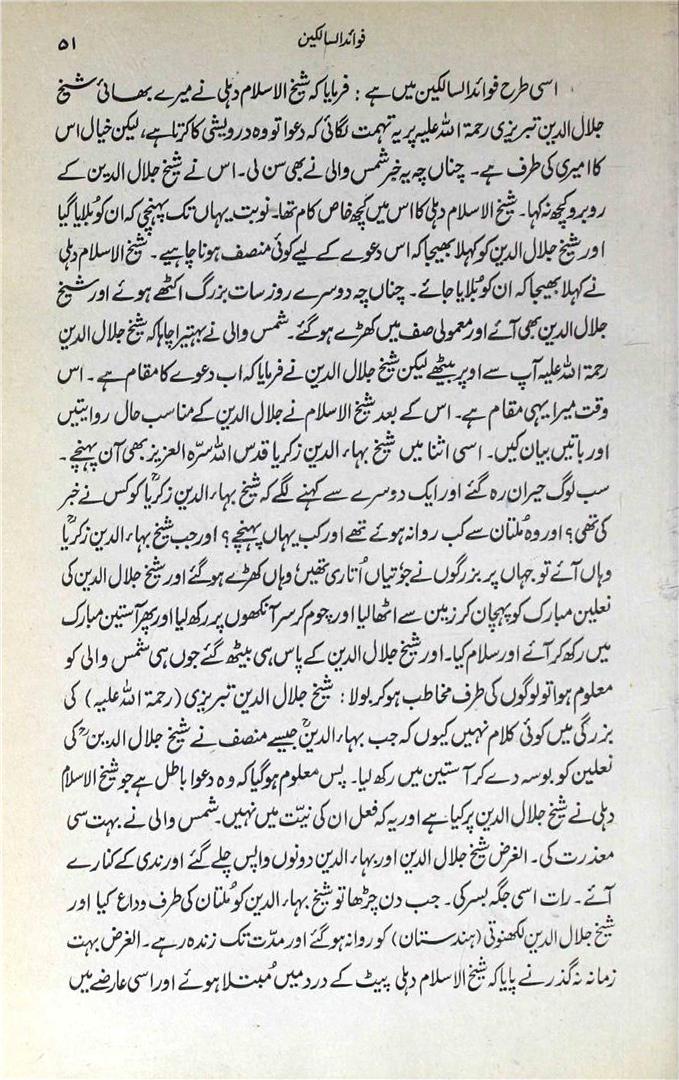 فوائد السالکین
۵۱
اسی طرح فوائد السالکین میں ہے : فرمایا کہ شیخ الاسلام دہلی نے میرے بھائی شیخ
جلال الدین تبریزی رحمۃ اللہ علیہ پر یہ تہمت لگائی کہ دعوا تو وہ درویشی کا کرتا ہے، لیکن خیال اس
کا امیری کی طرف ہے۔ چناں چہ یہ خبر شمس والی نے بھی سن لی۔ اس نے شیخ جلال الدین کے
روبرو کچھ نہ کہا۔ شیخ الاسلام دہلی کا اس میں کچھ خاص کام تھا۔ نوبت یہاں تک پہنچی کہ ان کو بُلایا گیا
اور شیخ جلال الدین کو کہلا بھیجا کہ اس دعوے کے لیے کوئی منصف ہونا چاہیے۔ شیخ الاسلام دہلی
نے کہلا بھیجا کہ ان کو بُلایا جائے۔ چناں چہ دوسرے روز سات بزرگ اکٹھے ہوئے اور شیخ
جلال الدین بھی آئے اور معمولی صف میں کھڑے ہو گئے۔ شمس والی نے بہتیرا چاہا کہ شیخ جلال الدین
رحمۃ اللہ علیہ آپ سے اوپر بیٹھے لیکن شیخ جلال الدین نے فرمایا کہ اب دعوے کا مقام ہے۔ اس
وقت میرا یہی مقام ہے۔ اس کے بعد شیخ الاسلام نے جلال الدین کے مناسب حال روایتیں
اور باتیں بیان کیں۔ اسی اثنا میں شیخ بہاء الدین زکریا قدس اللہ سرّہ العزیز بھی آن پہنچے۔
سب لوگ حیران رہ گئے اور ایک دوسرے سے کہنے لگے کہ شیخ بہاء الدین زکریاؒ کو کس نے خبر
کی تھی؟ اور وہ مُلتان سے کب روانہ ہوئے تھے اور کب یہاں پہنچے؟ اور جب شیخ بہاء الدین زکریاؒ
وہاں آئے تو جہاں پر بزرگوں نے جُوتیاں اُتاری تھیں وہاں کھڑے ہو گئے اور شیخ جلال الدین کی
نعلین مبارک کو پہچان کر زمین سے اٹھا لیا اور چوم کر سر آنکھوں پر رکھ لیا اور پھر آستین مبارک
میں رکھ کر آئے اور سلام کیا۔ اور شیخ جلال الدین کے پاس ہی بیٹھ گئے جوں ہی شمس والی کو
معلوم ہوا تو لوگوں کی طرف مخاطب ہو کر بولا : شیخ جلال الدین تبریزی (رحمۃ اللہ علیہ) کی
بزرگی میں کوئی کلام نہیں کیوں کہ جب بہاء الدینؒ جیسے منصف نے شیخ جلال الدینؒ کی
نعلین کو بوسہ دے کر آستین میں رکھ لیا۔ پس معلوم ہو گیا کہ وہ دعوا باطل ہے جو شیخ الاسلام
دہلی نے شیخ جلال الدین پر کیا ہے اور یہ کہ فعل ان کی نیّت میں نہیں۔ شمس والی نے بہت سی
معذرت کی۔ الغرض شیخ جلال الدین اور بہاء الدین دونوں واپس چلے گئے اور ندی کے کنارے
آئے۔ رات اسی جگہ بسر کی۔ جب دن چڑھا تو شیخ بہاء الدین کو مُلتان کی طرف وداع کیا اور
شیخ جلال الدین لکھنوتی (ہندستان) کو روانہ ہو گئے اور مدّت تک زندہ رہے۔ الغرض بہت
زمانہ نہ گذرنے پایا کہ شیخ الاسلام دہلی پیٹ کے درد میں مُبتلا ہوئے اور اسی عارضے میں